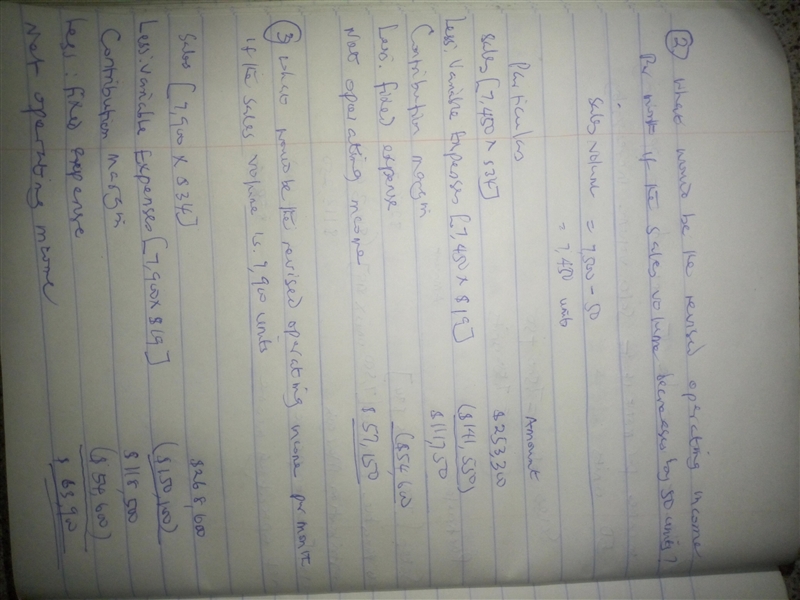 ② What would be the revised operating income
Per month if the Sales volume decreases by 50 units?
Sales volume = 7,500 - 50
= 7,450 units
Particulars Amount
Sales [7,450 x $34] $253,300
Less: Variable Expenses [7,450 x $19] ($141,550)
Contribution margin $111,750
Less: fixed expense ($54,600)
Net operating income $57,150
③ What would be the revised operating income per month
if the sales volume is 7,900 units
Sales [7,900 x $34] $268,600
Less: Variable Expenses [7,900 x $19] ($150,100)
Contribution margin $118,500
Less: fixed expense ($54,600)
Net operating income $63,900